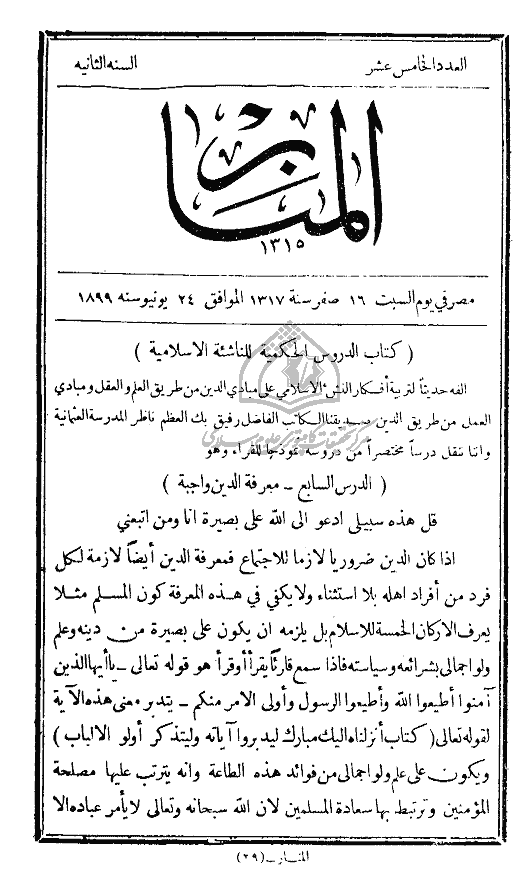 العدد الخامس عشر
السنه الثانيه
المنار
١٣١٥
مصر في يوم السبت ١٦ صفر سنة ١٣١٧ الموافق ٢٤ يونيو سنه ١٨٩٩
( كتاب الدروس الحكمية للناشئة الاسلامية )
الفه حديثاً لتربية أفكار النشء الاسلامي على مبادي الدين من طريق العلم والعقل ومبادي
العمل من طريق الدين صديقنا الكاتب الفاضل رفيق بك العظم ناظر المدرسة العثمانية
واننا ننقل درساً مختصراً من دروسه نموذجاً للقراء وهو
( الدرس السابع ـ معرفة الدين واجبة )
قل هذه سبيلى ادعو الى الله على بصيرة انا ومن اتبعني
اذا كان الدين ضروريا لازما للاجتماع فمعرفة الدين أيضاً لازمة لكل
فرد من أفراد اهله بلا استثناء ولا يكفي في هذه المعرفة كون المسلم مثلا
يعرف الاركان الخمسة للاسلام بل يلزمه ان يكون على بصيرة من دينه وعلم
ولو اجمالى بشرائعه وسياسته فاذا سمع قارئاً يقرأ أو قرأ هو قوله تعالى ـ يا أيها الذين
آمنوا أطيعوا الله وأطيعوا الرسول وأولى الامر منكم ـ يتدبر معنى هذه الآية
لقوله تعالى ( كتاب أنزلناه اليك مبارك ليدبروا آياته وليتذكر أولو الالباب )
ويكون على علم ولو اجمالى من فوائد هذه الطاعة وانه يترتب عليها مصلحة
المؤمنين وترتبط بها سعادة المسلمين لان الله سبحانه وتعالى لا يأمر عباده الا
المنار ـ (٢٩)